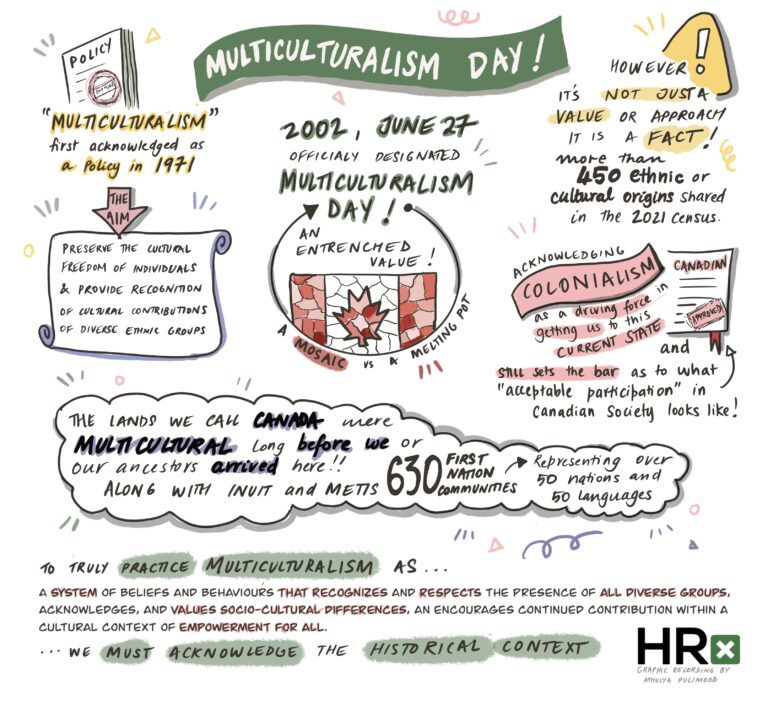 MULTICULTURALISM DAY!
POLICY
"MULTICULTURALISM"
first acknowledged as
a Policy in 1971
THE
AIM
PRESERVE THE CULTURAL
FREEDOM OF INDIVIDUALS
& PROVIDE RECOGNITION
OF CULTURAL CONTRIBUTIONS
OF DIVERSE ETHNIC GROUPS
2002, JUNE 27
OFFICIALY DESIGNATED
MULTICULTURALISM
DAY!
AN
ENTRENCHED
VALUE!
A MOSAIC VS A MELTING POT
HOWEVER
IT'S NOT JUST A
VALUE OR APPROACH
IT IS A FACT!
more than
450 ethnic or
cultural origins shared
in the 2021 census.
ACKNOWLEDGING
COLONIALISM
as a driving force in
getting us to this
CURRENT STATE
and
still sets the bar as to what
"acceptable participation" in
Canadian Society looks like!
CANADIAN
APPROVED
THE LANDS WE CALL CANADA were
MULTICULTURAL long before we or
our ancestors arrived here!!
ALONG WITH INUIT and METIS
630 FIRST
NATION
COMMUNITIES
Representing over
50 nations and
50 languages
TO TRULY PRACTICE MULTICULTURALISM AS...
A SYSTEM OF BELIEFS AND BEHAVIOURS THAT RECOGNIZES AND RESPECTS THE PRESENCE OF ALL DIVERSE GROUPS,
ACKNOWLEDGES, AND VALUES SOCIO-CULTURAL DIFFERENCES, AN ENCOURAGES CONTINUED CONTRIBUTION WITHIN A
CULTURAL CONTEXT OF EMPOWERMENT FOR ALL.
... WE MUST ACKNOWLEDGE THE HISTORICAL CONTEXT
HRx
GRAPHIC RECORDING BY
ATHULYA PULIMOOD